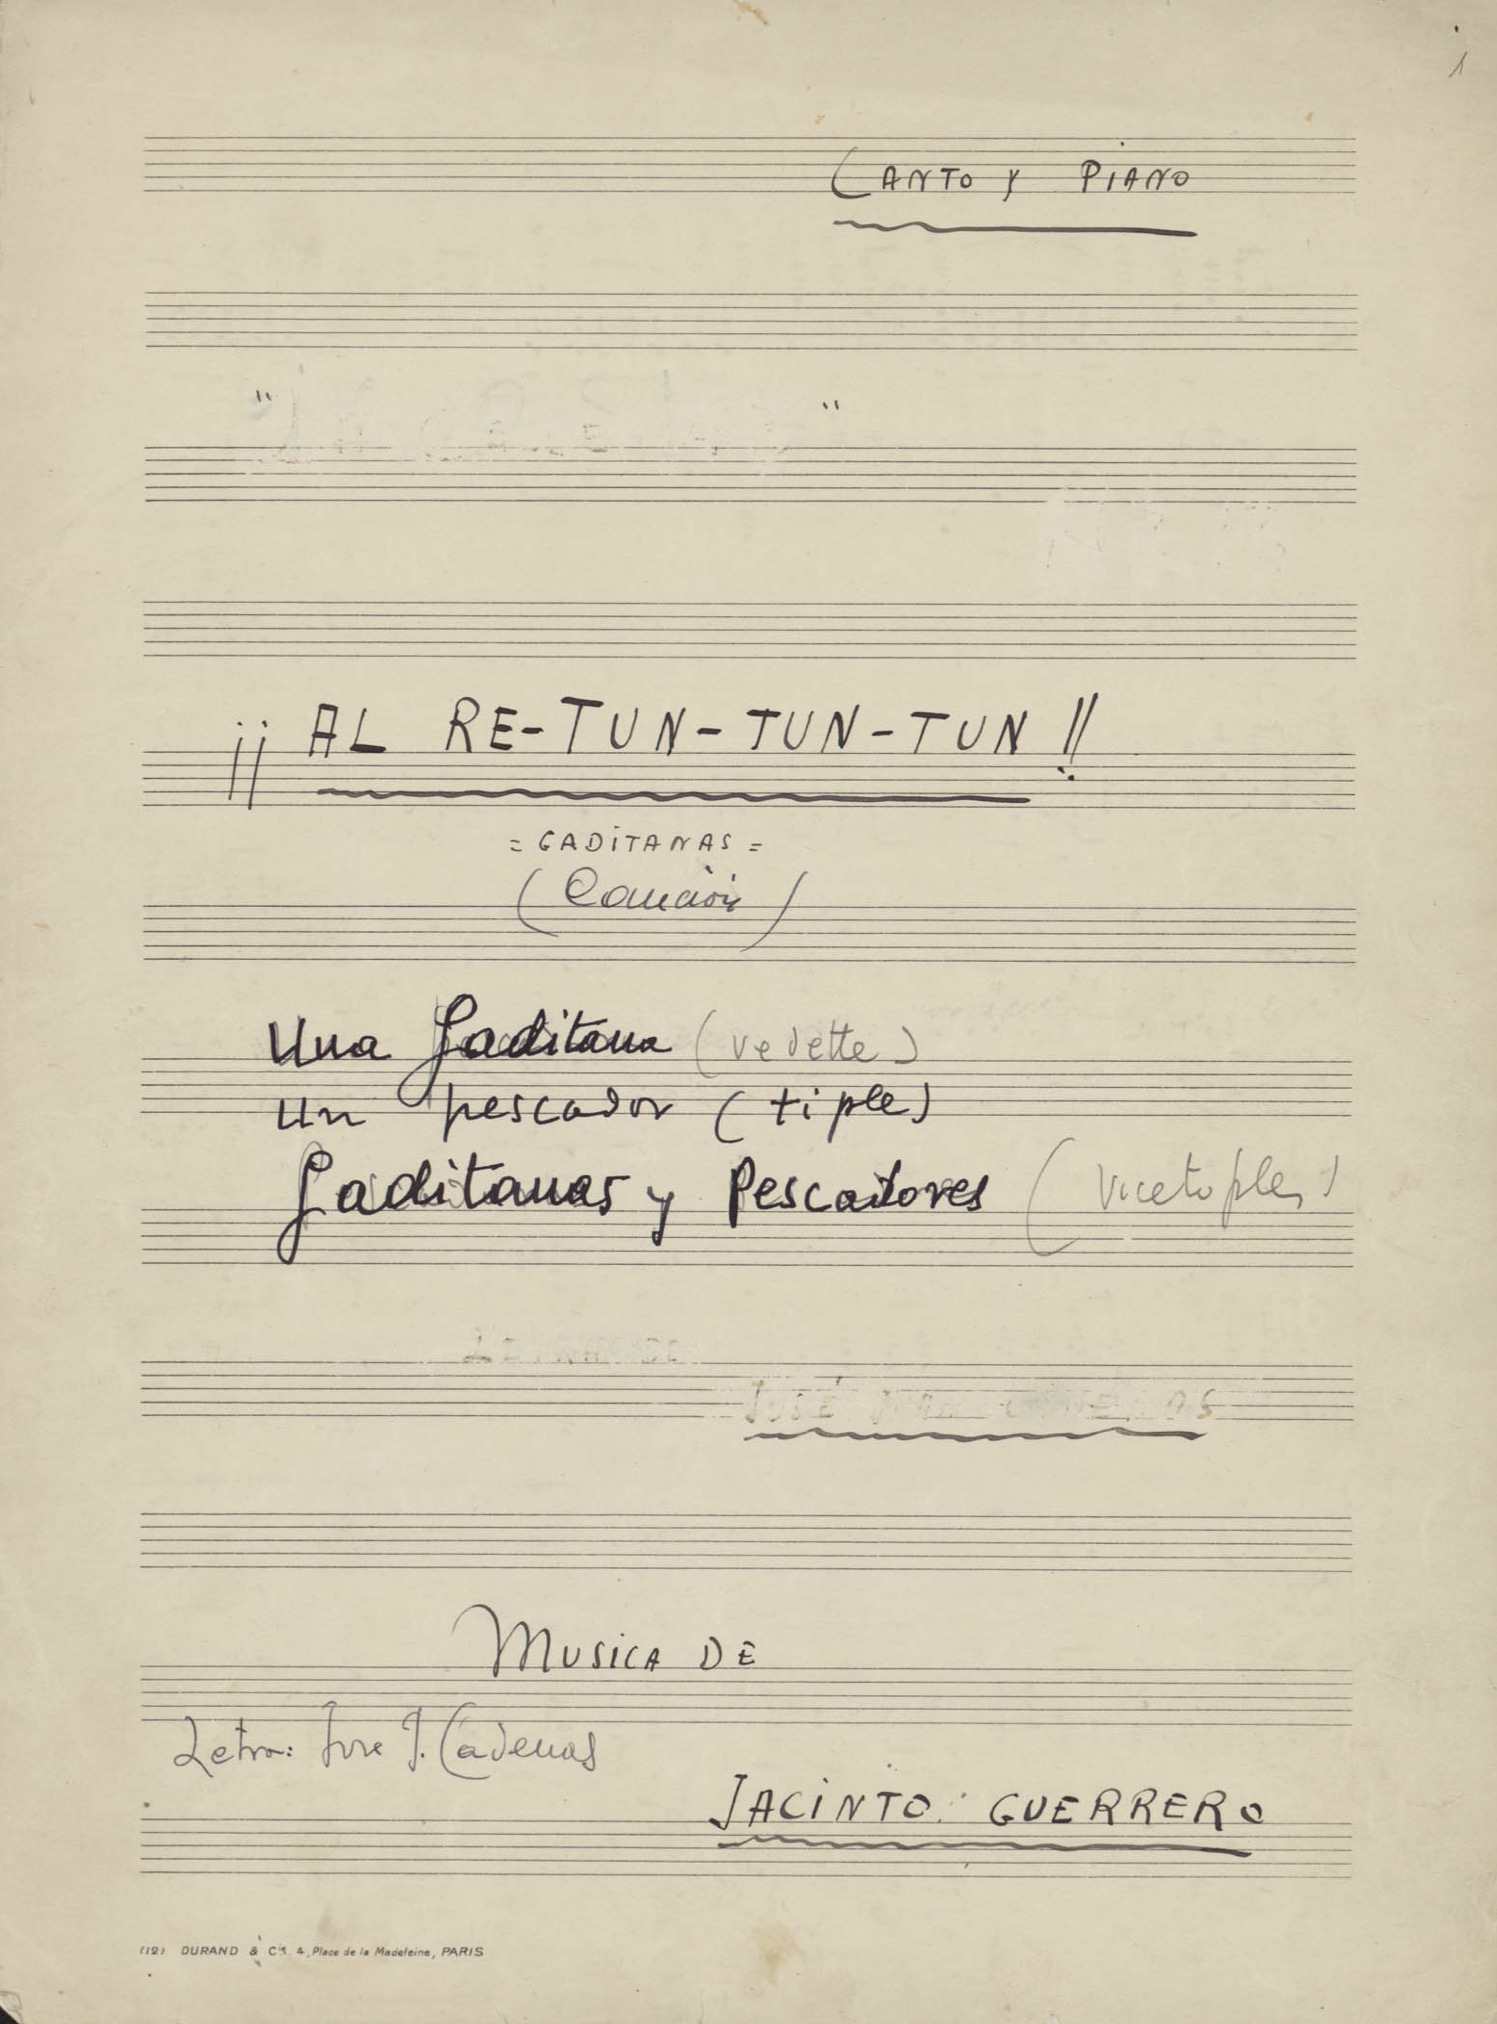 1
CANTO Y PIANO
" "
¡¡ AL RE-TUN-TUN-TUN !!
= GADITANAS =
(Canción)
Una Gaditana (vedette)
un pescador (tiple)
Gaditanas y Pescadores (Vicetiples)
JOSÉ
MUSICA DE
Letra: Jose J. Cadenas
JACINTO GUERRERO
(12) DURAND & Cie. 4, Place de la Madeleine, PARIS